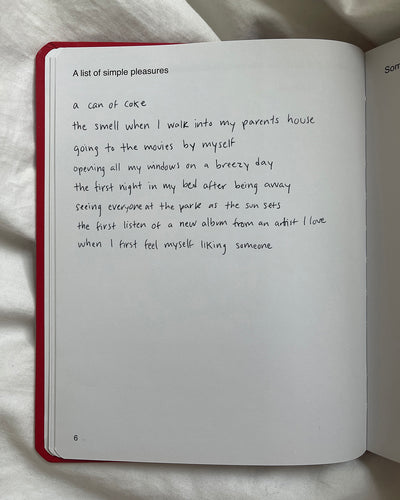 A list of simple pleasures
Som
a can of coke
the smell when I walk into my parents house
going to the movies by myself
opening all my windows on a breezy day
the first night in my bed after being away
seeing everyone at the park as the sun sets
the first listen of a new album from an artist I love
when I first feel myself liking someone
6